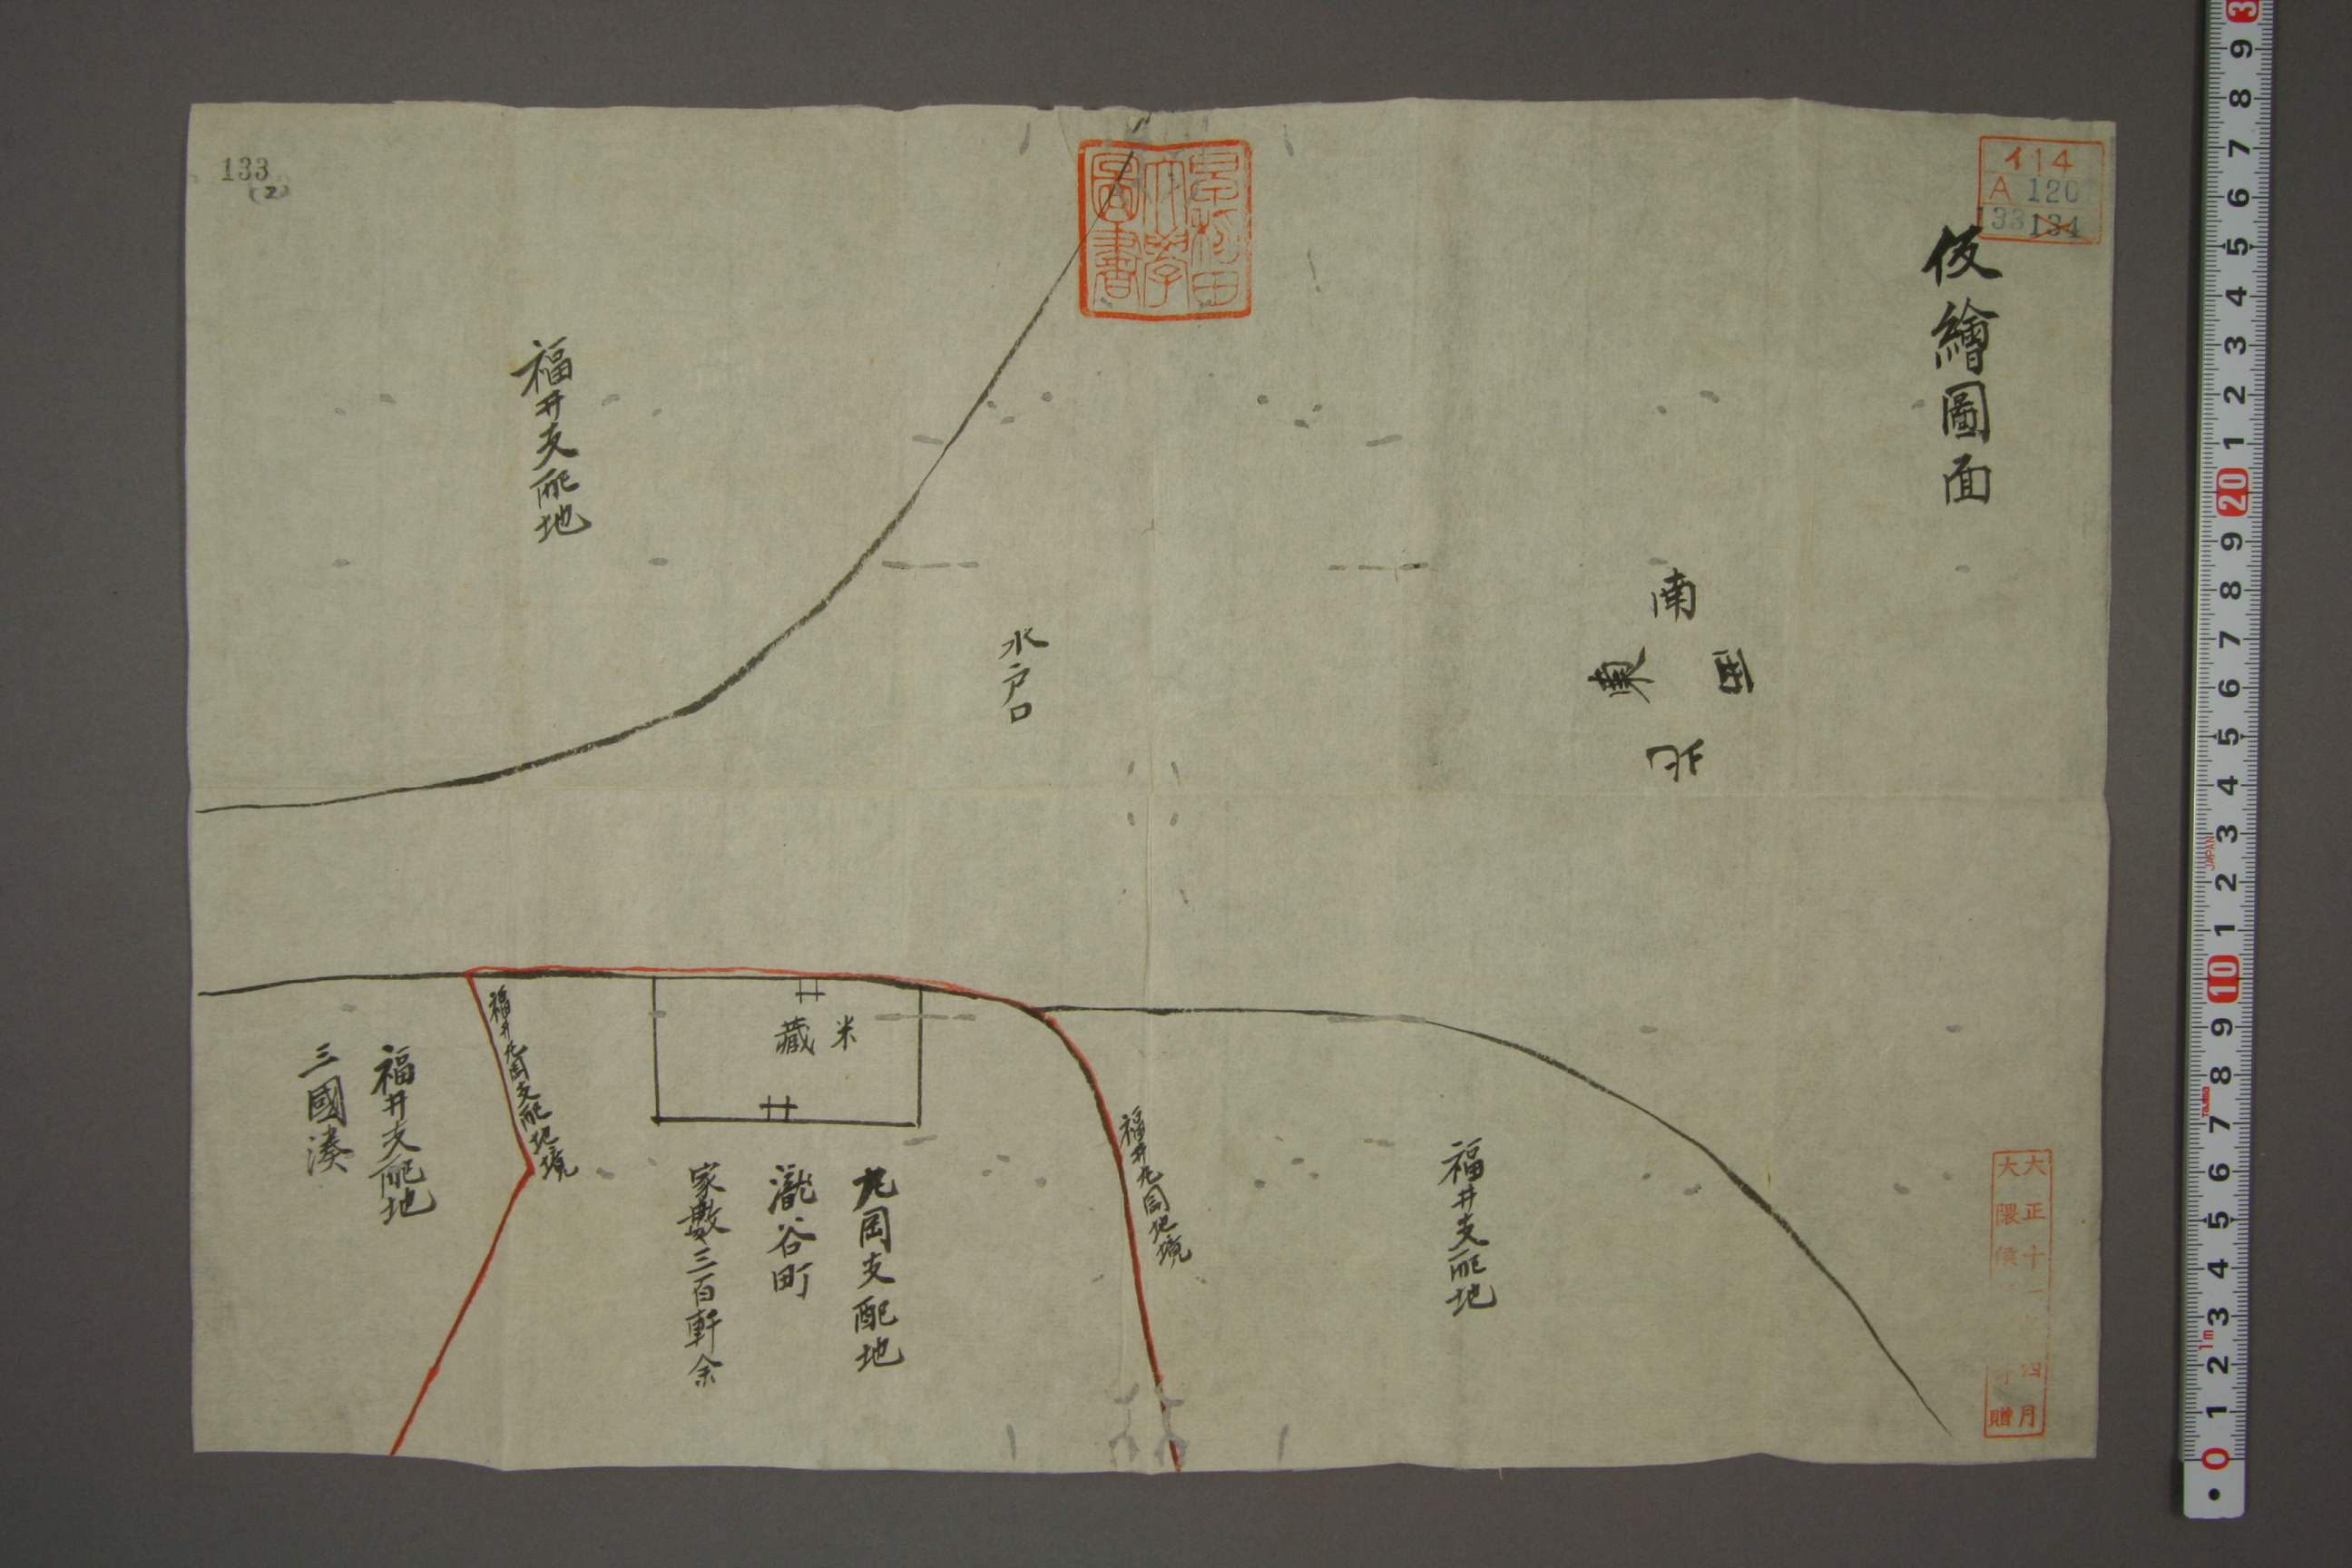 仮繪圖面
イ14
A 120
133 134
南
西
東
北
水戸口
福井支配地
133
(2)
福井支配地
福井丸岡地境
米
藏
丸岡支配地
瀧谷町
家數三百軒余
福井丸岡支配地境
福井支配地
三國湊
早稻田
大學
圖書
大正十一
四月
大隈侯
贈